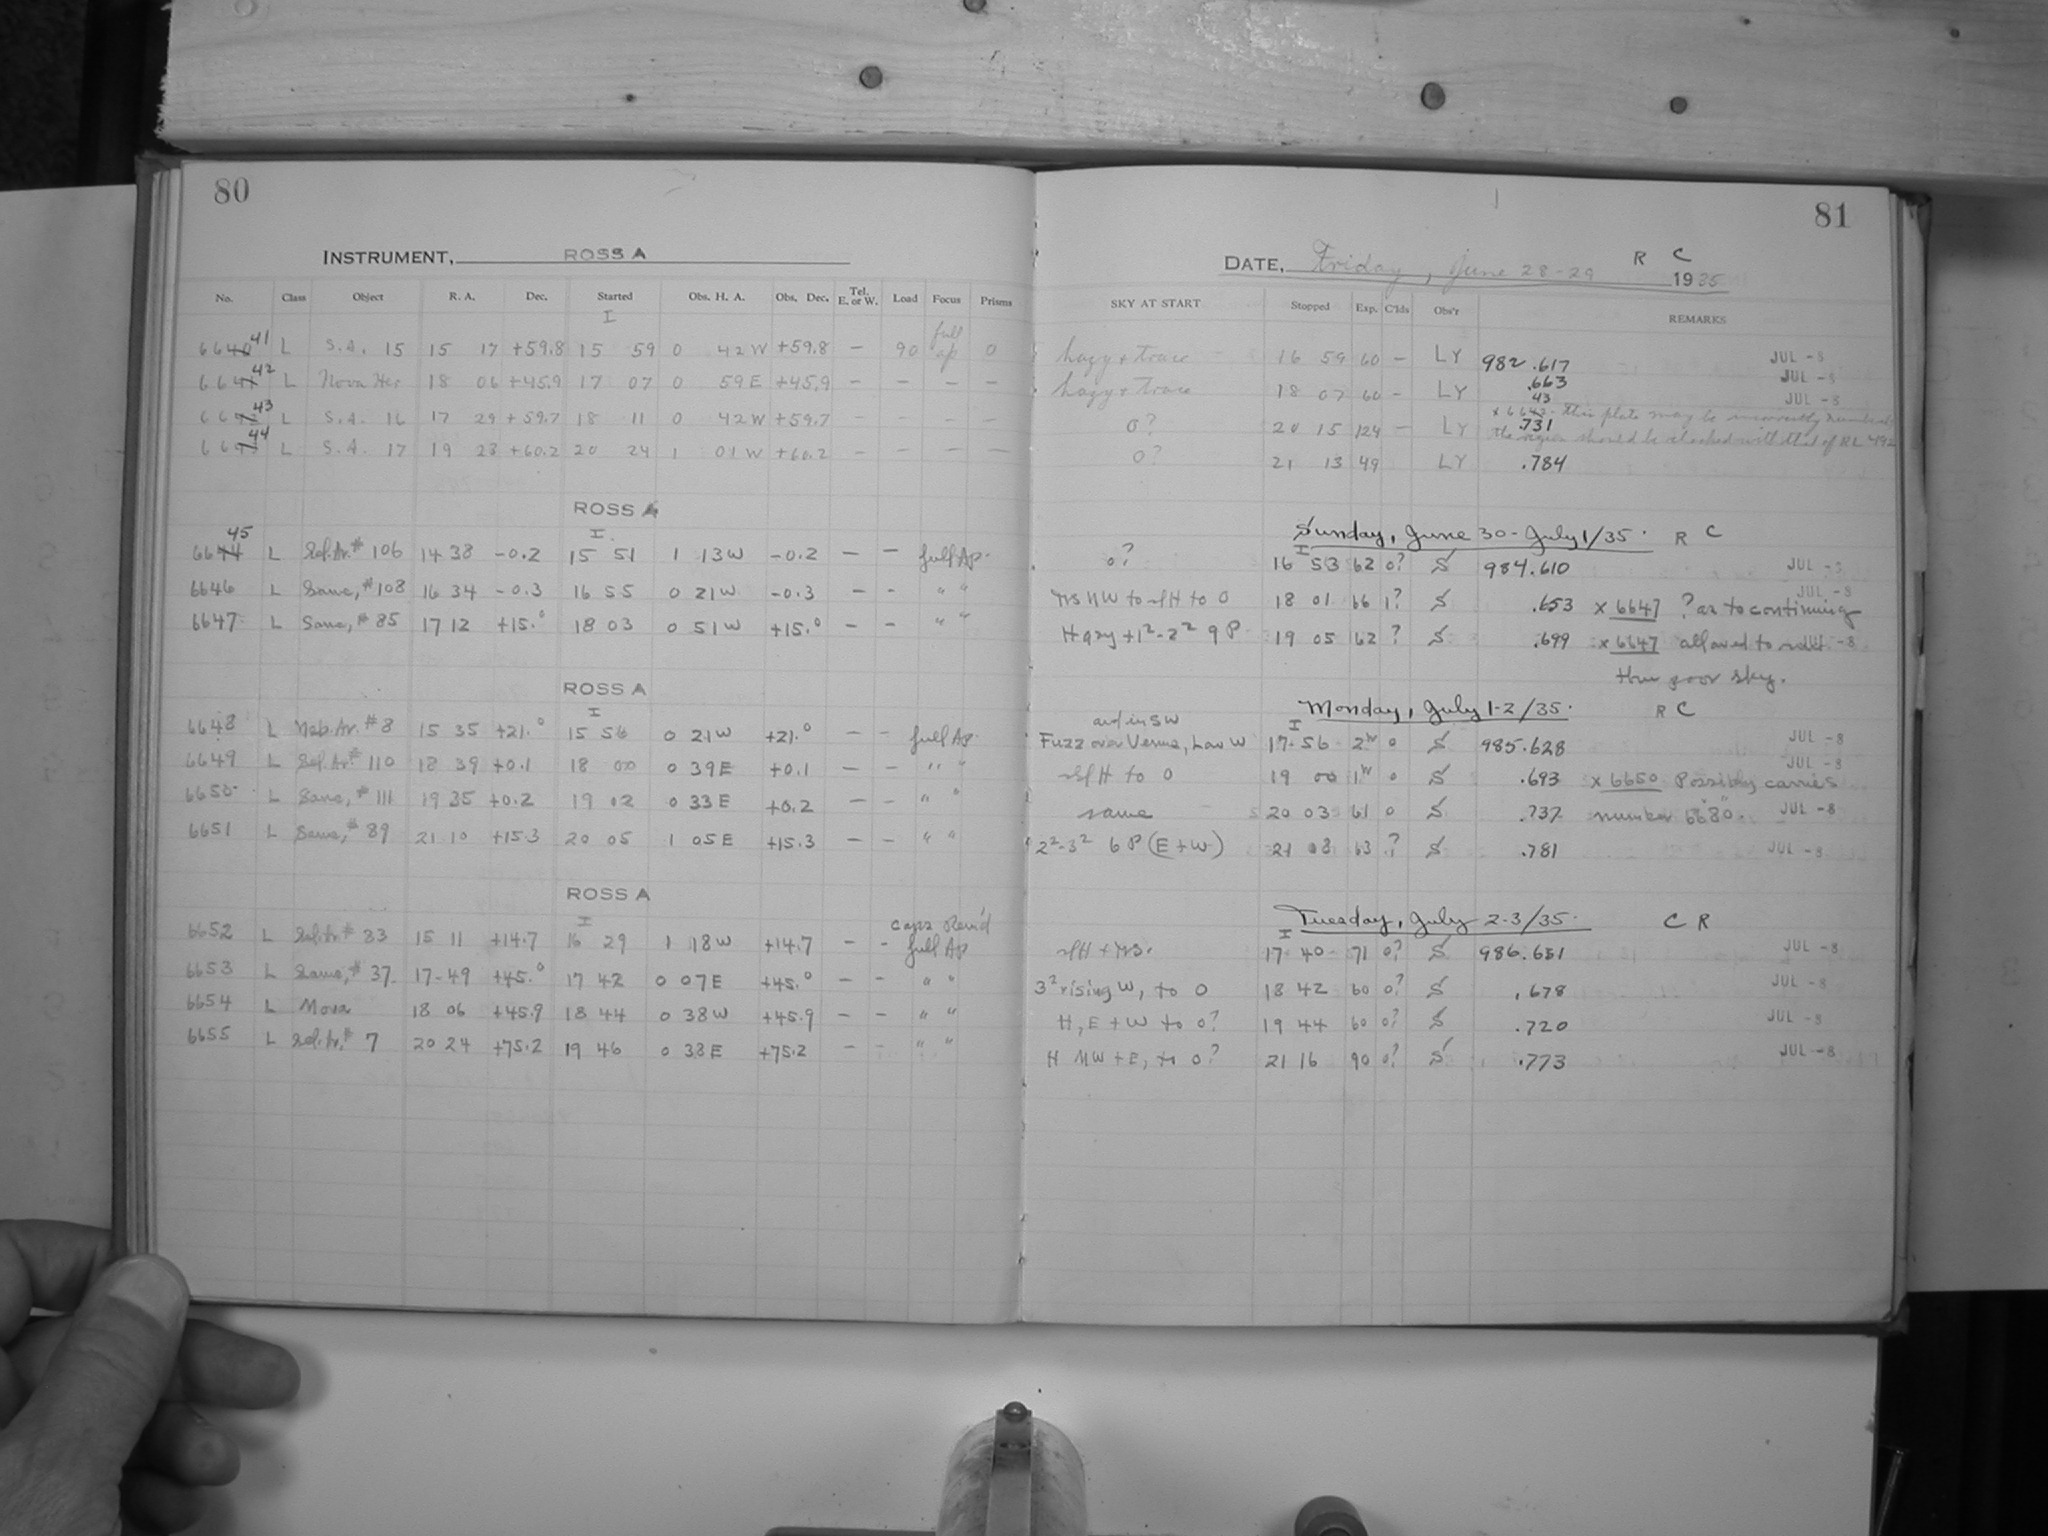 80
INSTRUMENT, ROSS A
No. Class Object R. A. Dec. Started Obs. H. A. Obs. Dec. Tel. E. or W. Load Focus Prisms
I
6640 41 L S.A. 15 15 17 +59.8 15 59 0 42 W +59.8 — 90 full ap 0
42 L Nova Her 18 06 +45.9 17 07 0 59 E +45.9 — — — —
43 L S.A. 16 17 29 +59.7 18 11 0 42 W +59.7 — — — —
44 L S.A. 17 19 23 +60.2 20 24 1 01 W +60.2 — — — —
ROSS A
I
6644 45 L Sel. Ar. # 106 14 38 -0.2 15 51 1 13 W -0.2 — — full Ap.
6646 L Same, # 108 16 34 -0.3 16 55 0 21 W -0.3 — — " "
6647 L Same, # 85 17 12 +15.° 18 03 0 51 W +15.° — — " "
ROSS A
I
6648 L Nab. Ar. # 8 15 35 +21.° 15 56 0 21 W +21.° — — full Ap.
6649 L Sel. Ar. # 110 18 39 +0.1 18 00 0 39 E +0.1 — — " "
6650 L Same, # 111 19 35 +0.2 19 02 0 33 E +0.2 — — " "
6651 L Same, # 89 21 10 +15.3 20 05 1 05 E +15.3 — — " "
ROSS A
I
caps Rem'd
6652 L Sel. Ar # 83 15 11 +14.7 16 29 1 18 W +14.7 — — full Ap
6653 L Same, # 37 17 49 +45.° 17 42 0 07 E +45.° — — " "
6654 L Nova 18 06 +45.9 18 44 0 38 W +45.9 — — " "
6655 L Sel. Ar. # 7 20 24 +75.2 19 46 0 38 E +75.2 — — " "
81
DATE, Friday, June 28-29 1935 R C
SKY AT START Stopped Exp. C'lds Obs'r REMARKS
hazy + trace 16 59 60 — LY 982.617 JUL -8
hazy + trace 18 07 60 — LY .663 JUL -8
0? 20 15 124 — LY .731 x 6643 - this plate may be incorrectly numbered JUL -8
the region should be checked with that of RL 492
0? 21 13 49 LY .784
Sunday, June 30 - July 1/35. R C
I
0? 16 53 62 0? S 984.610 JUL -8
NW to H to 0 18 01 66 1? S .653 x 6647 ? as to continuing JUL -8
Hazy + 1²-2² 9 P 19 05 62 ? S .699 x 6647 allowed to JUL -8
thru poor sky.
Monday, July 1-2/35. R C
I
and in SW
Fuzz over Venus, Low W 17 56 2ʰ 0 S 985.628 JUL -8
H to 0 19 00 1ʰ 0 S .693 x 6650 Possibly carries JUL -8
same 20 03 61 0 S .737 number "6680". JUL -8
2²-3² 6 P (E+W) 21 08 63 ? S .781 JUL -8
Tuesday, July 2-3/35. C R
I
17 40 71 0? S 986.651 JUL -8
3² rising W, to 0 18 42 60 0? S .678 JUL -8
H, E + W to 0? 19 44 60 0? S .720 JUL -8
H NW + E, to 0? 21 16 90 0? S .773 JUL -8